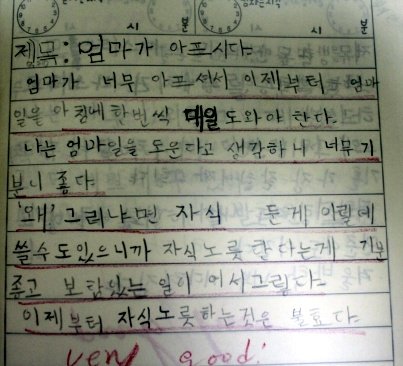 시 분 시 분
제목: 엄마가 아프시다.
엄마가 너무 아프셔서 이제부터 엄마
일을 아침에 한번씩 매일 도와야 한다.
나는 엄마일을 도운다고 생각하니 너무 기
분이 좋다.
'왜' 그러냐면 자식 둔게 이럴때
쓸수도있으니까 자식노릇 할 기분
좋고 보람있는 일이 어서그렇다.
이제부터 자식노릇하는것은 불효다.
very good!